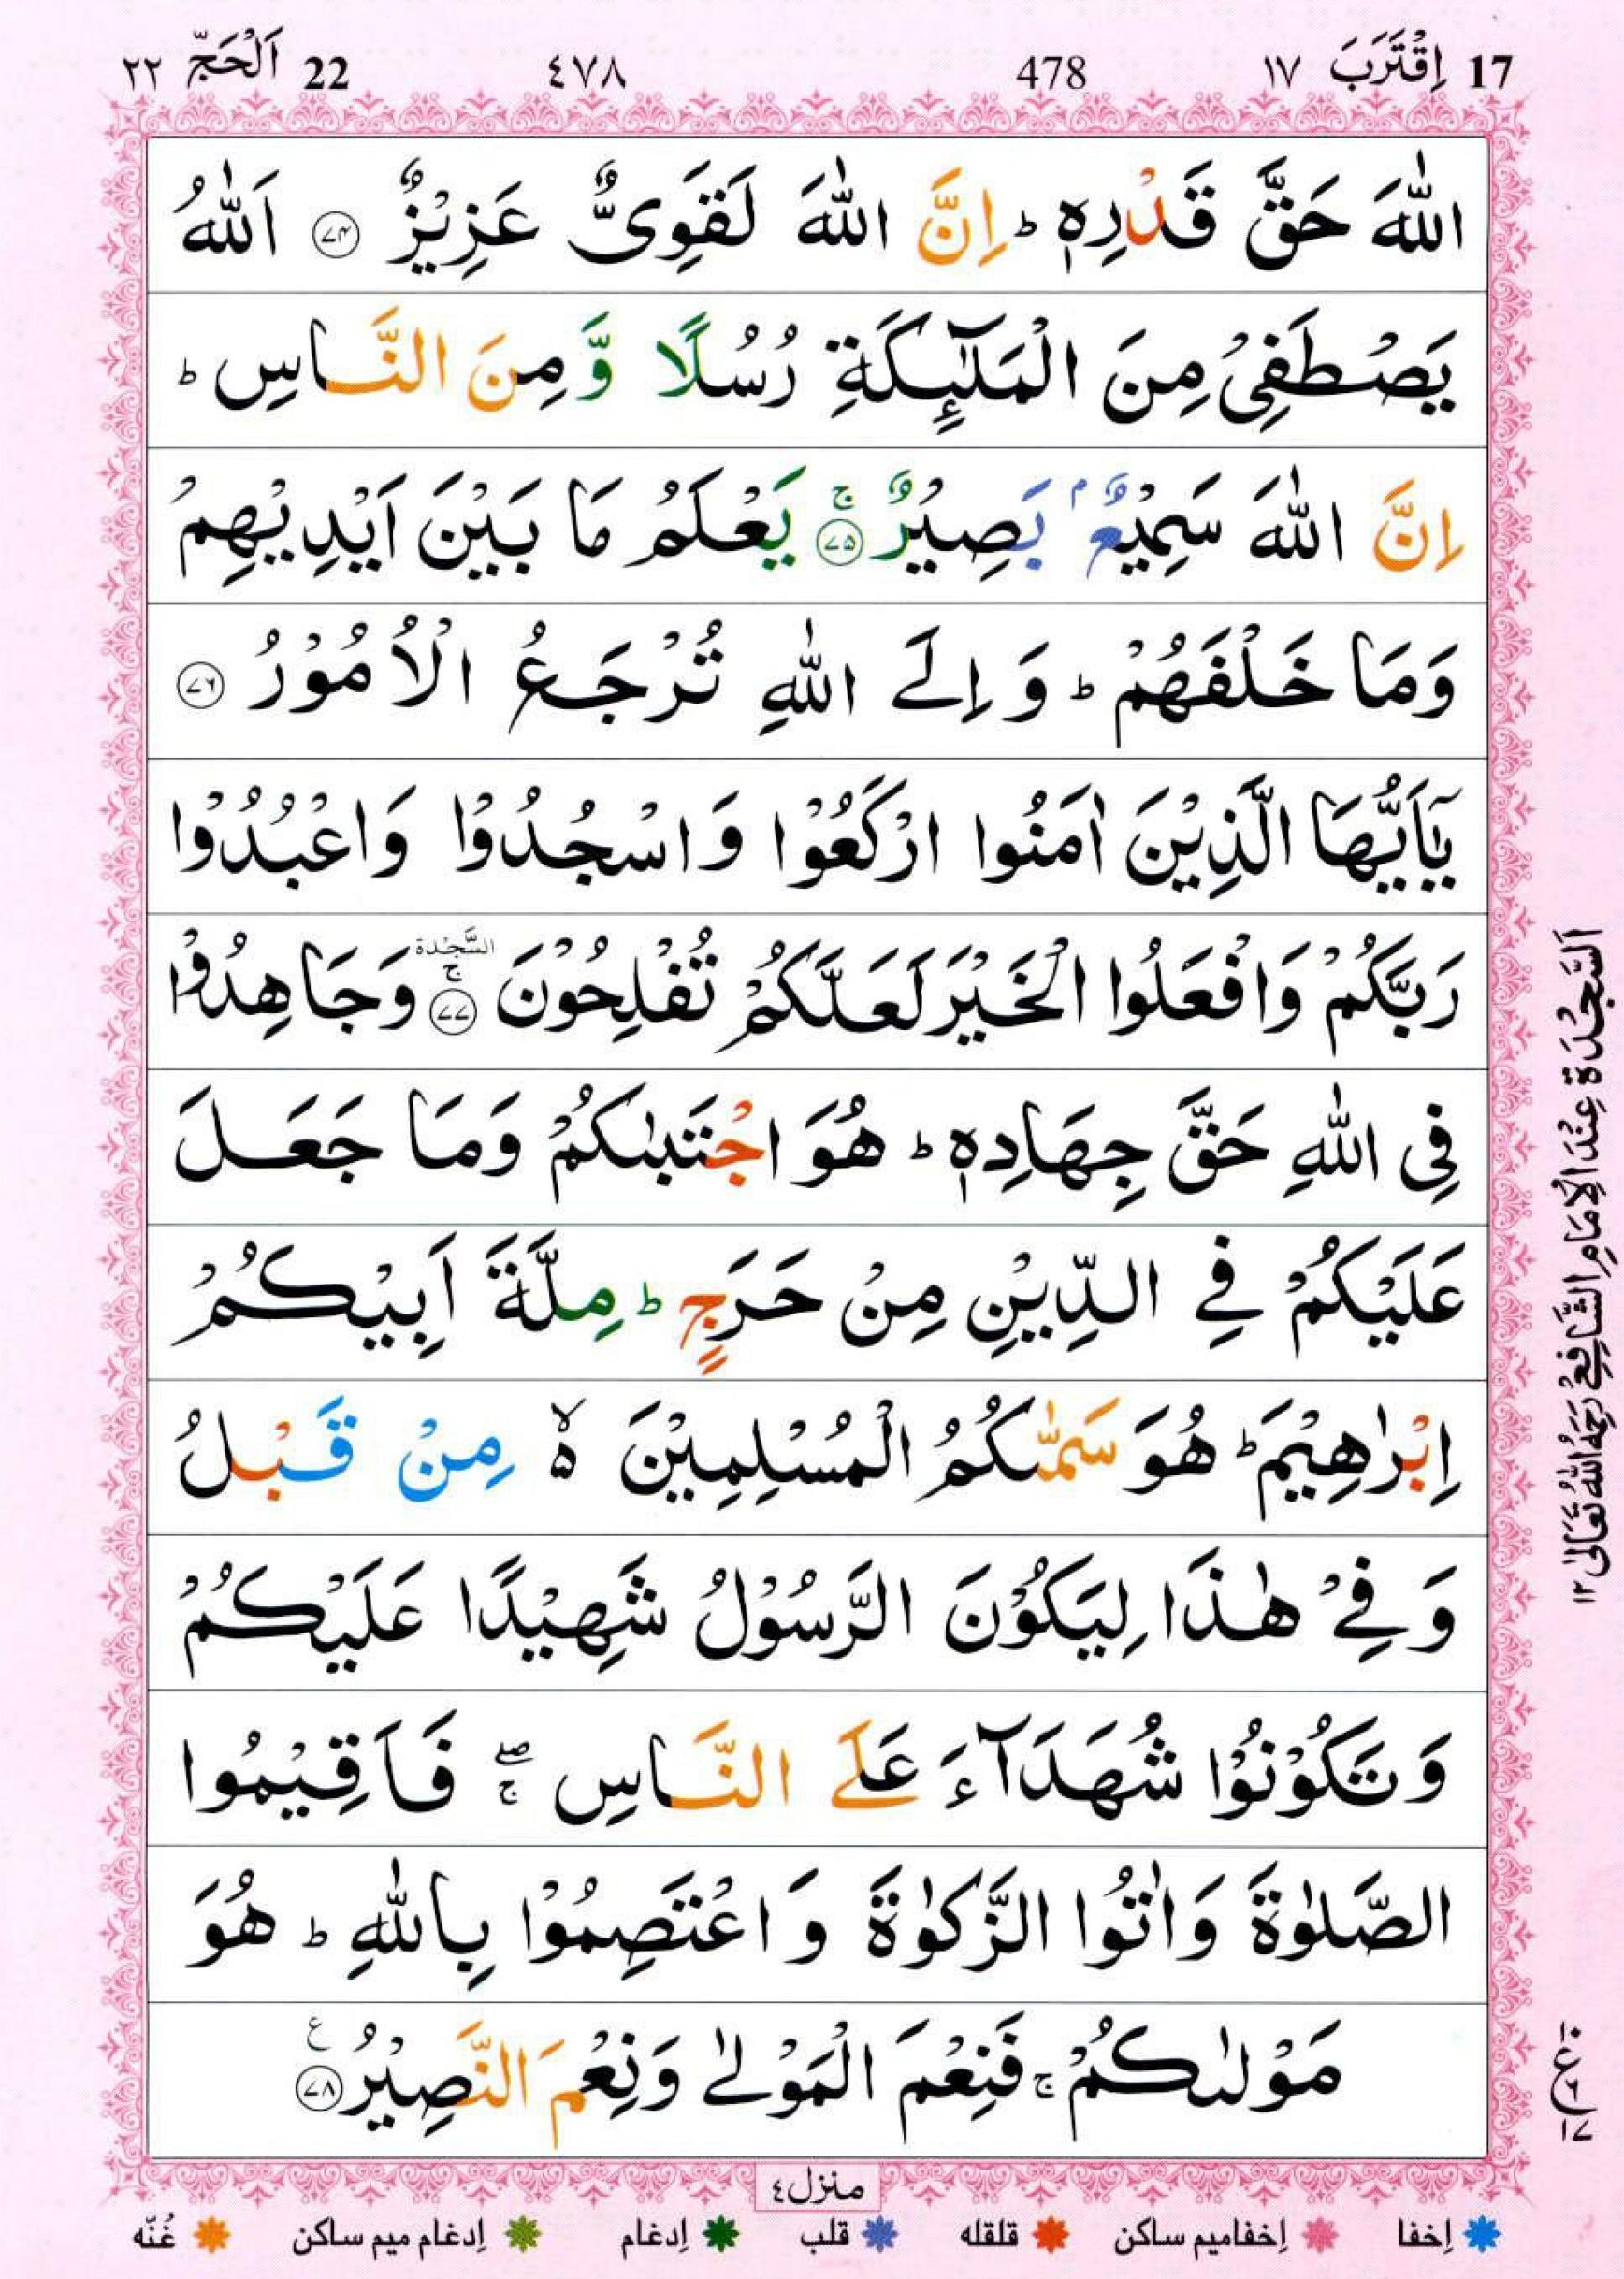 17 اِقْتَرَبَ ١٧ 478 ٤٧٨ 22 اَلْحَجّ ٢٢
اللّٰهَ حَقَّ قَدْرِهٖ ؕ اِنَّ اللّٰهَ لَقَوِیٌّ عَزِیْزٌ ﴿۷۴﴾ اَللّٰهُ
یَصْطَفِیْ مِنَ الْمَلٰٓىِٕكَةِ رُسُلًا وَّ مِنَ النَّاسِ ؕ
اِنَّ اللّٰهَ سَمِیْعٌۢ بَصِیْرٌ ﴿ۚ۷۵﴾ یَعْلَمُ مَا بَیْنَ اَیْدِیْهِمْ
وَمَا خَلْفَهُمْ ؕ وَ اِلَی اللّٰهِ تُرْجَعُ الْاُمُوْرُ ﴿۷۶﴾
یٰۤاَیُّهَا الَّذِیْنَ اٰمَنُوا ارْكَعُوْا وَ اسْجُدُوْا وَ اعْبُدُوْا
رَبَّكُمْ وَ افْعَلُوا الْخَیْرَ لَعَلَّكُمْ تُفْلِحُوْنَ السَّجْدَة ﴿ۚ۷۷﴾ وَ جَاهِدُوْا
فِی اللّٰهِ حَقَّ جِهَادِهٖ ؕ هُوَ اجْتَبٰىكُمْ وَمَا جَعَلَ
عَلَیْكُمْ فِی الدِّیْنِ مِنْ حَرَجٍ ؕ مِلَّةَ اَبِیْكُمْ
اِبْرٰهِیْمَ ؕ هُوَ سَمّٰىكُمُ الْمُسْلِمِیْنَ ۙ۬ مِنْ قَبْلُ
وَ فِیْ هٰذَا لِیَكُوْنَ الرَّسُوْلُ شَهِیْدًا عَلَیْكُمْ
وَ تَكُوْنُوْا شُهَدَآءَ عَلَی النَّاسِ ۖۚ فَاَقِیْمُوا
الصَّلٰوةَ وَ اٰتُوا الزَّكٰوةَ وَ اعْتَصِمُوْا بِاللّٰهِ ؕ هُوَ
مَوْلٰىكُمْ ۚ فَنِعْمَ الْمَوْلٰی وَ نِعْمَ النَّصِیْرُ ﴿۷۸﴾ ع
اَلسَّجْدَة عِنْدَ الْاِمَامِ الشَّافِعِیْ رَحِمَهُ اللّٰهُ تَعَالٰی ١٢
ع ۱۰ ۶ ۱۷
منزل ٤
اِخفا اِخفامیم ساکن قلقله قلب اِدغام اِدغام میم ساکن غُنّه